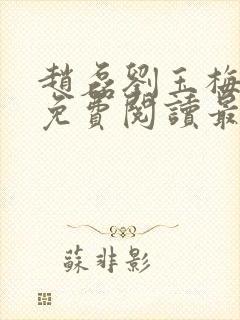 趙磊劉玉梅
免費閱讀最
蘇非影